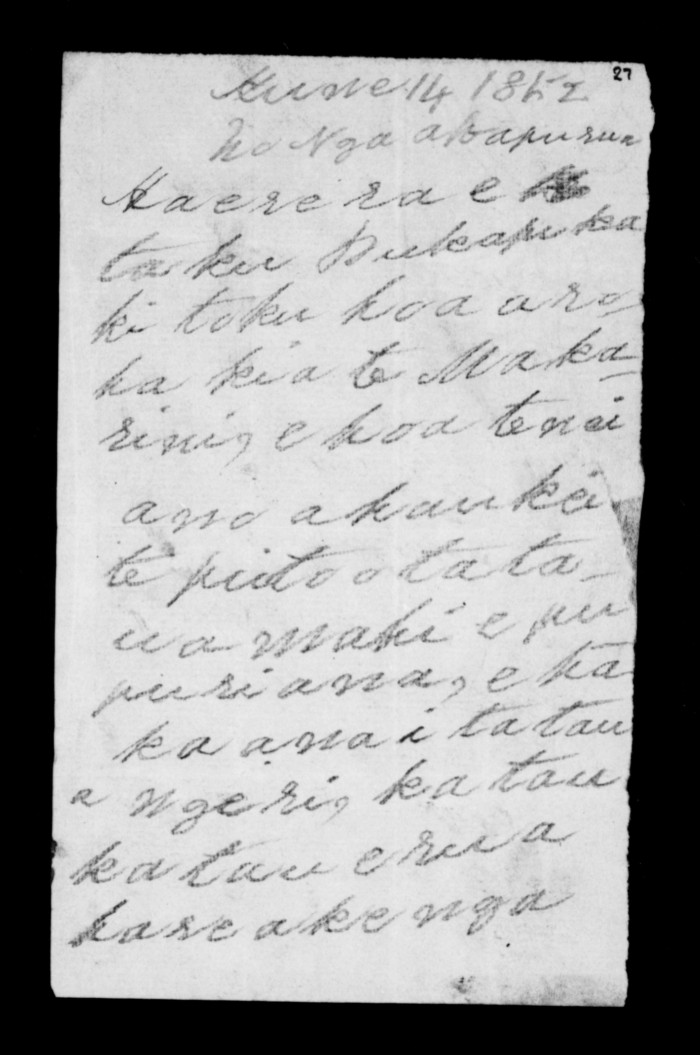 27
Hune 14 1862
No Nga
Haere ra e
taku Pukapuka
ki toku hoa aro-
ha kia te Maka-
rini, e hoa tenei
ano ahau kei
te pito o tata-
ua mahi e pu
puri ana, e ha
ka ana i ta tau
a ngeri, ka tau
ka tau erua
hare ake nga